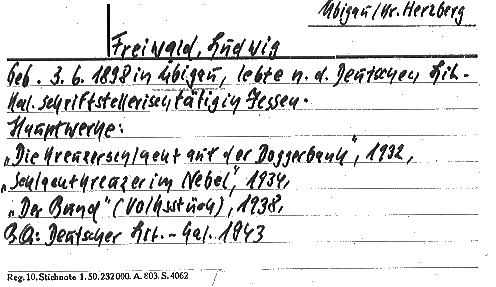 Übigau/Kr. Herzberg
Freiwald, Ludwig
Geb. 3. 6. 1898 in Übigau, lebte n. d. Deutschen Lit.-
Kal. schriftstellerisch tätig in Jessen.
Hauptwerke:
„Die Kreuzerschlacht auf der Doggerbank", 1932,
„Schlachtkreuzer im Nebel", 1934,
„Der Bund" (Volksstück), 1938,
BQ: Deutscher Lit.-Kal. 1943
Reg. 10. Stichnote 1. 50. 232000. A. 803. S. 4062